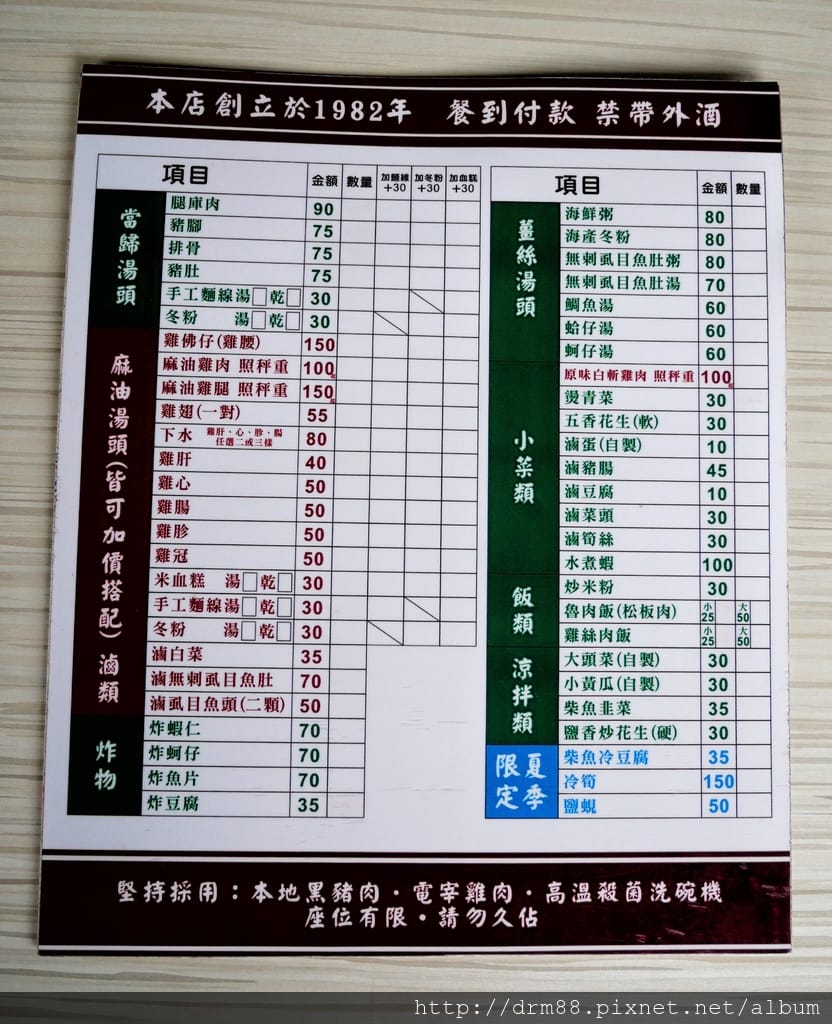 本店創立於1982年 餐到付款 禁帶外酒
項目 金額 數量 加麵線+30 加冬粉+30 加血糕+30
當歸湯頭
腿庫肉 90
豬腳 75
排骨 75
豬肚 75
手工麵線湯□乾□ 30
冬粉 湯□乾□ 30
麻油湯頭(皆可加價搭配)
雞佛仔(雞腰) 150
麻油雞肉 照秤重 100
麻油雞腿 照秤重 150
雞翅(一對) 55
下水 雞肝、心、胗、腸 任選二或三樣 80
雞肝 40
雞心 50
雞腸 50
雞胗 50
雞冠 50
米血糕 湯□乾□ 30
手工麵線湯□乾□ 30
冬粉 湯□乾□ 30
滷類
滷白菜 35
滷無刺虱目魚肚 70
滷虱目魚頭(二顆) 50
炸物
炸蝦仁 70
炸蚵仔 70
炸魚片 70
炸豆腐 35
項目 金額 數量
薑絲湯頭
海鮮粥 80
海產冬粉 80
無刺虱目魚肚粥 80
無刺虱目魚肚湯 70
鯛魚湯 60
蛤仔湯 60
蚵仔湯 60
小菜類
原味白斬雞肉 照秤重 100
燙青菜 30
五香花生(軟) 30
滷蛋(自製) 10
滷豬腸 45
滷豆腐 10
滷菜頭 30
滷筍絲 30
水煮蝦 100
飯類
炒米粉 30
魯肉飯(松板肉) 小25 大50
雞絲肉飯 小25 大50
涼拌類
大頭菜(自製) 30
小黃瓜(自製) 30
柴魚韭菜 35
鹽香炒花生(硬) 30
夏季限定
柴魚冷豆腐 35
冷筍 150
鹽蜆 50
堅持採用：本地黑豬肉·電宰雞肉·高溫殺菌洗碗機
座位有限·請勿久佔
http://drm88.pixnet.net/album